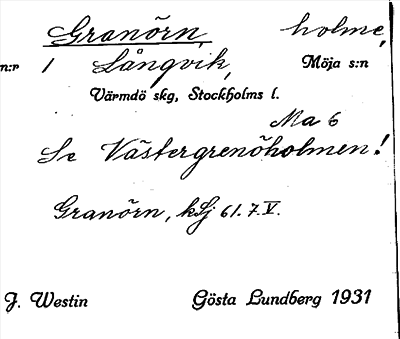 Granörn, holme,
n:r 1 Långvik, Möja s:n
Värmdö skg, Stockholms l.
Ma 6
Se Västergrenöholmen!
Granörn, kSj 61.7.V.
J. Westin Gösta Lundberg 1931